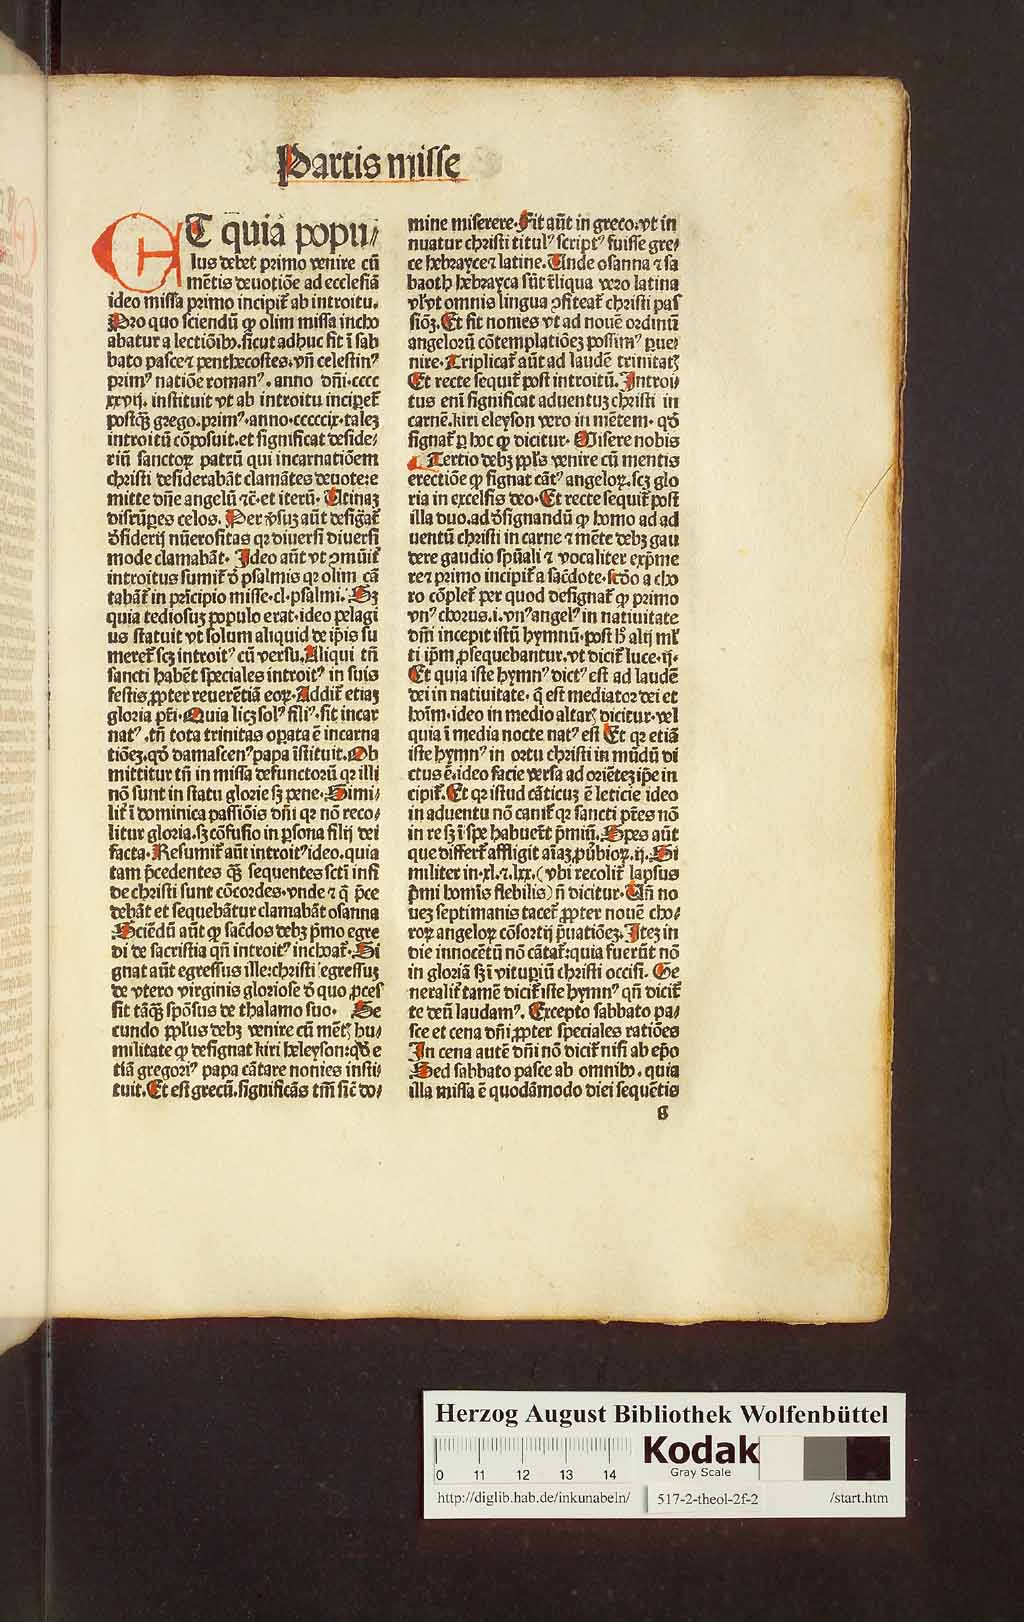 Partis misse
ET quia popu⸗
lus debet primo venire cū
mētis deuotiōe ad ecclesiā
ideo missa primo incipit̄ ab introitu.
Pro quo sciendū ꝙ olim missa incho
abatur a lectiōibꝰ.sicut adhuc fit ī sab
bato pasce ⁊ penthecostes. vn̄ celestinꝰ
primꝰ natiōe romanꝰ. anno dn̄i.cccc
xxvij. instituit vt ab introitu inciperet̄
postqꝫ grego.primꝰ.anno.cccccix.talez
introitū cōposuit.et significat deside⸗
riū sanctoꝝ patrū qui incarnatiōem
christi desiderabāt clamātes deuote:e
mitte dn̄e angelū ⁊c̄.et iterū. Utinaz
disrūpes celos. Per v̓suz aūt desigāt̄
d̓siderij nūerositas qꝛ diuersi diuersi
mode clamabāt. Ideo aūt vt ꝯmūit̄
introitus sumit̄ d̓ psalmis qꝛ olim cā
tabāt̄ in prīcipio misse.cl.psalmi. Sꝫ
quia tediosuz populo erat.ideo pelagi
us statuit vt solum aliquid de ip̄is su
meret̄ scꝫ introitꝰ cū versu. Aliqui tn̄
sancti habēt speciales introitꝰ in suis
festis ꝓpter reuerētiā eoꝝ. Addit̄ etiaz
gloria pr̄i. Quia licꝫ solꝰ filiꝰ.sit incar
natꝰ .tn̄ tota trinitas oꝑata ē incarna
tiōez.qd̓ damascenꝰ papa īstituit. Ob
mittitur tn̄ in missa defunctorū qꝛ illi
nō sunt in statu glorie sꝫ pene. Simi⸗
lit̄ ī dominica passiōis dn̄i qꝛ nō reco⸗
litur gloria.sꝫ cōfusio in ꝑsona filij dei
facta. Resumit̄ aūt introitꝰ ideo.quia
tam p̄cedentes qꝫ sequentes sctī insi
de christi sunt cōcordes.vnde ⁊ q̄ p̄ce
debāt et sequebātur clamabāt osanna
Sciēdū aūt ꝙ sac̄dos debꝫ p̄mo egre
di de sacristia qn̄ introitꝰ inchoat̄. Si
gnat aūt egressus ille:christi egressuz
de vtero virginis gloriose d̓ quo ꝓces
sit tāqꝫ spōsus de thalamo suo. Se
cundo ppl̓us debꝫ venire cū mētꝭ hu⸗
militate ꝙ designat kiri heleyson:qd̓ e
tiā gregoriꝰ papa cātare nonies insti⸗
tuit. Et est grecū.significās tm̄ sic̄ do⸗
mine miserere. Fit aūt in greco.vt in
nuatur christi titulꝰ scriptꝰ fuisse gre⸗
ce hebrayce ⁊ latine. Unde osanna ⁊ sa
baoth hebrayca sūt r̄liqua vero latina
vl̓ vt omnis lingua ꝯfiteat̄ christi pas
siōꝫ. Et fit nonies vt ad nouē ordinū
angelorū cōtemplatiōez possimꝰ ꝑue⸗
nire. Triplicat̄ aūt ad laudē trinitatꝭ
Et recte sequit̄ post introitū. Introi⸗
tus enī significat aduentuz christi in
carnē.kiri eleyson vero in mētem. qd̓
signat̄ ꝑ hoc ꝙ dicitur. Misere nobis
Tertio debꝫ ppl̓s venire cū mentis
erectiōe ꝙ signat cātꝰ angeloꝝ.scꝫ glo
ria in excelsis deo. Et recte sequit̄ post
illa duo.ad d̓signandū ꝙ homo ad ad
uentū christi in carne ⁊ mēte debꝫ gau
dere gaudio spūali ⁊ vocaliter exp̄me
re ⁊ primo incipit̄ a sac̄dote.scd̓o a cho
ro cōplet̄ per quod designat̄ ꝙ primo
vnꝰ chorus.i.vnꝰ angelꝰ in natiuitate
dn̄i incepit istū hymnū.post hꝭ alij ml̓
ti ip̄m ꝓsequebantur.vt dicit̄ luce.ij.
Et quia iste hymnꝰ dictꝰ est ad laudē
dei in natiuitate. q̄ est mediator dei et
hoīm.ideo in medio altarꝭ dicitur.vel
quia ī media nocte natꝰ est Et qꝛ etiā
iste hymnꝰ in ortu christi in mūdū di
ctus ē.ideo facie versa ad oriētez ip̄e in
cipit̄. Et qꝛ istud cāticuz ē leticie ideo
in aduentu nō canit̄ qꝛ sancti pr̄es nō
in re sꝫ ī spe habuer̄t p̄miū. Spes aūt
que differt̄ affligit aīaz.ꝓūbioꝝ.ij. Si
militer in.xl.⁊.lxx.(vbi recolit̄ lapsus
p̄mi homīs flebilis)n̄ dicitur. Un̄ no
uez septimanis tacet̄ ꝓpter nouē cho⸗
roꝝ angeloꝝ cōsortij p̄uatiōez. Itez in
die innocētū nō cātat̄:quia fuerūt nō
in gloriā sꝫ ī vituꝑiū christi occisi. Ge
neralit̄ tamē dicit̄ iste hymnꝰ qn̄ dicit̄
te deū laudamꝰ. Excepto sabbato pa⸗
sce et cena dn̄i ꝓpter speciales ratiōes
In cena autē dn̄i nō dicit̄ nisi ab ep̄o
Sed sabbato pasce ab omnibꝰ. quia
illa missa ē quodāmodo diei sequētis
g
Herzog August Bibliothek Wolfenbüttel
Kodak
Gray Scale
0 11 12 13 14
http://diglib.hab.de/inkunabeln/
517-2-theol-2f-2
/start.htm